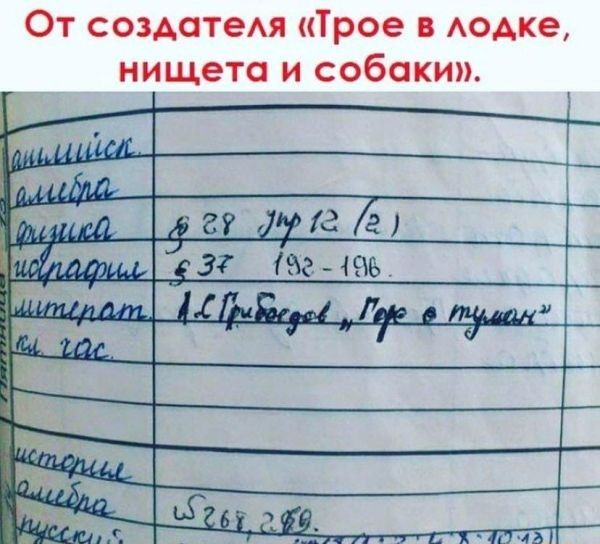 От создателя «Трое в лодке,
нищета и собаки».
английск.
алгебра
физика § 28 упр 12 (2)
география § 37 192-196.
литерат. А.С Грибоедов „Горе о туман"
кл. час.
Пятница
история
алгебра № 267, 269.
русский